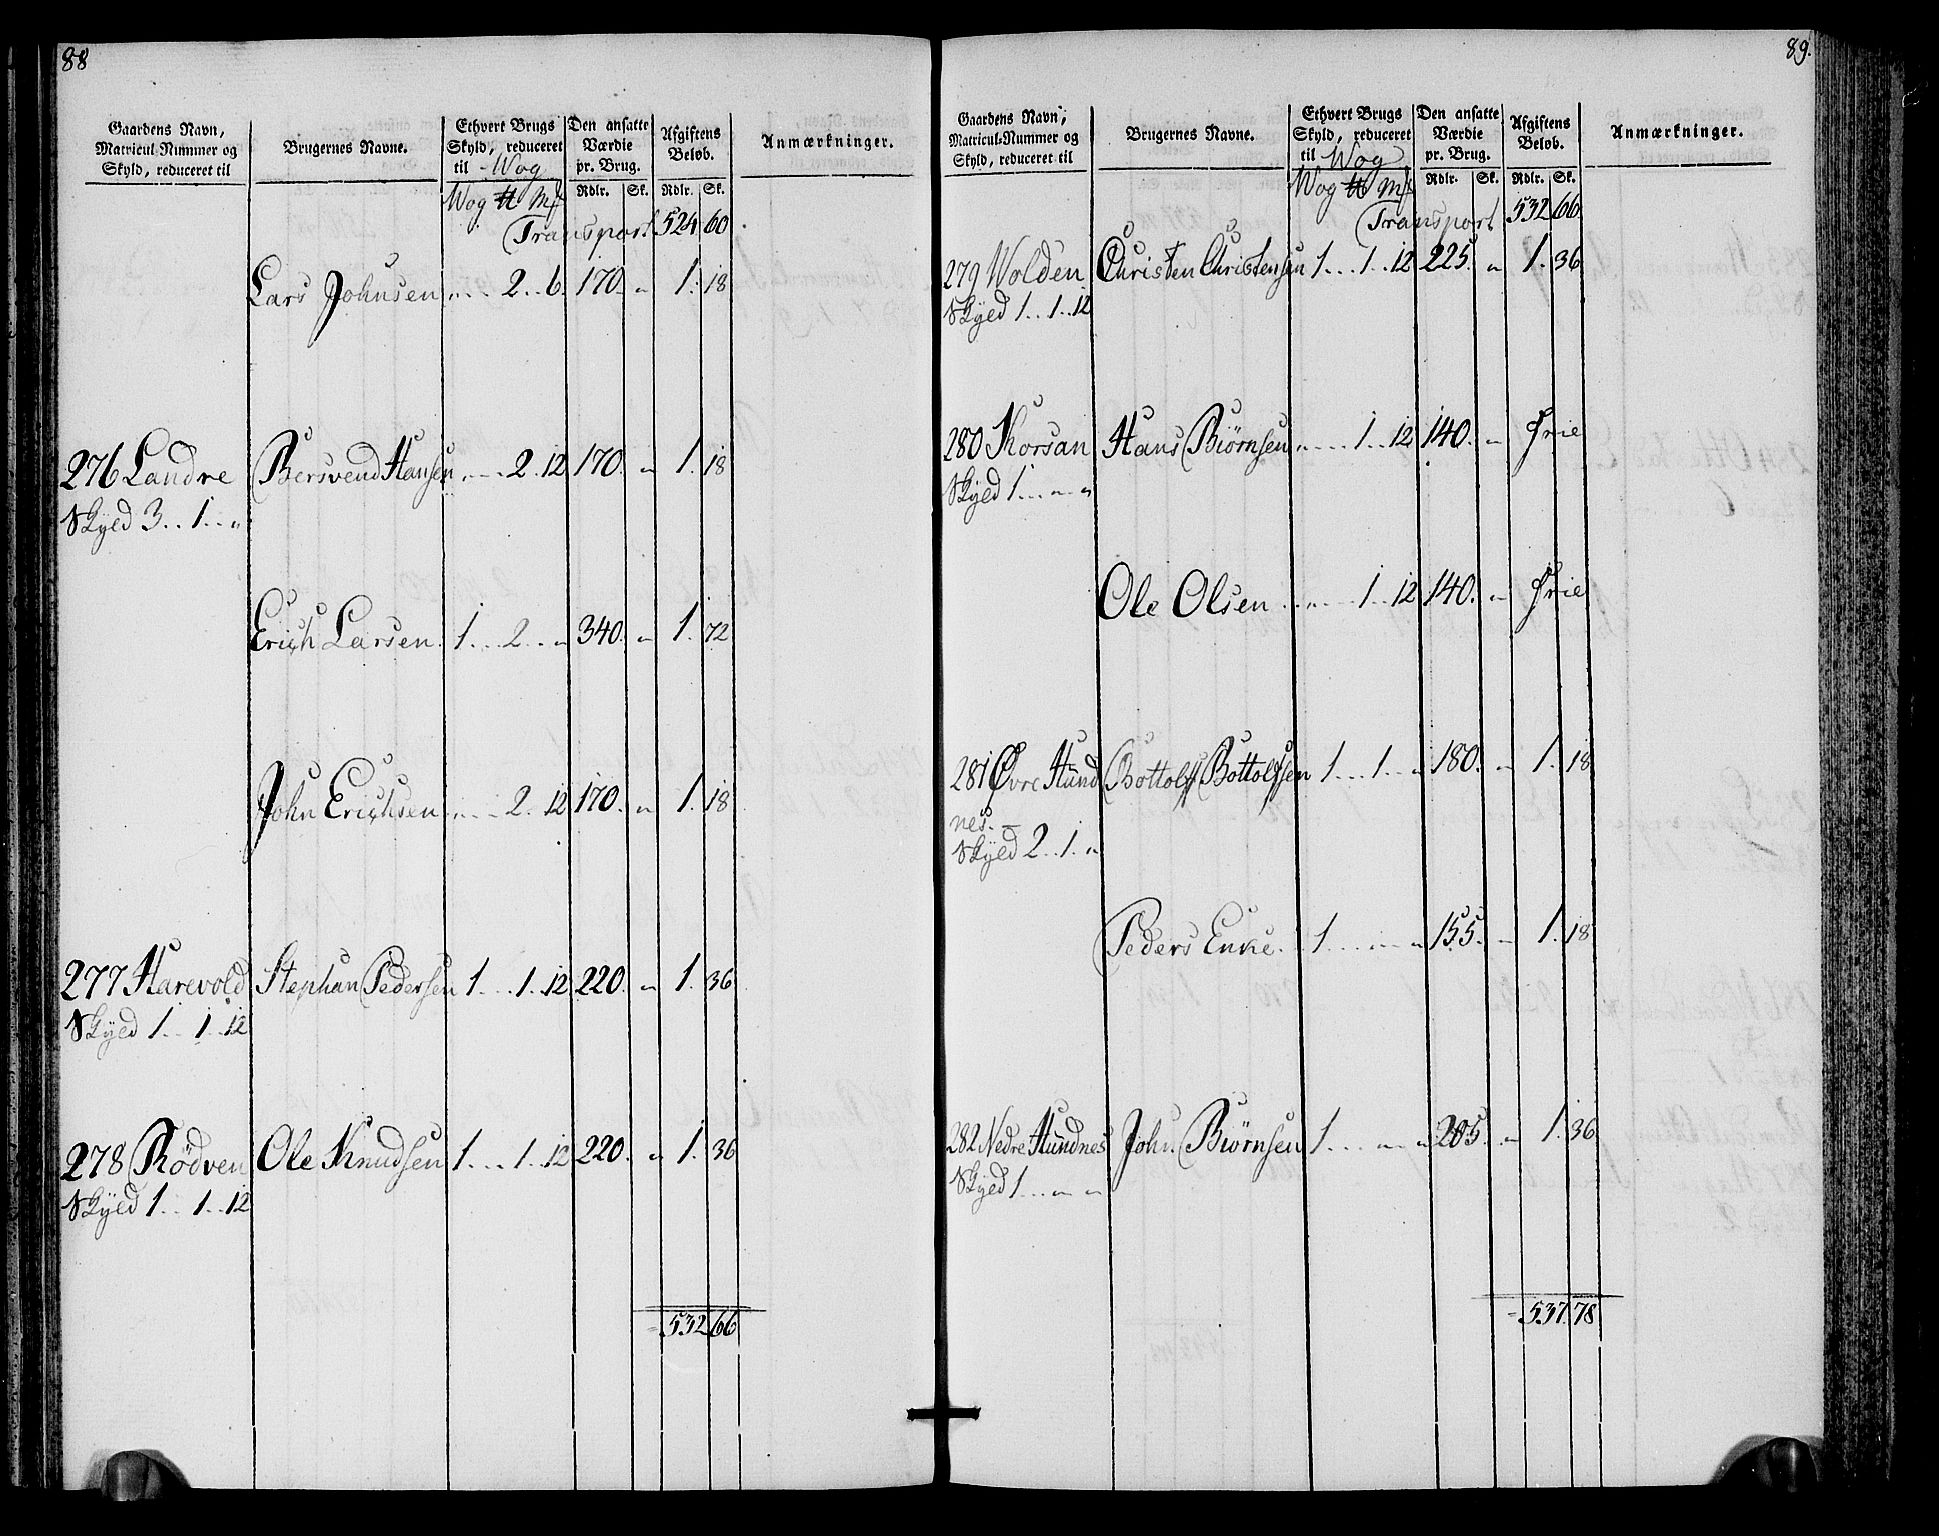 88
Gaardens Navn, Matricul-Nummer og Skyld, reduceret til | Brugernes Navne. | Ethvert Brugs Skyld, reduceret til Wog | Den ansatte Værdie pr. Brug. | Afgiftens Beløb. | Anmærkninger.
Wog ℔ Mk | Rdlr. | Sk. | Rdlr. | Sk.
Transport 524 60
Lars Johnsen . . . . 2 . . 6. 170. „ 1. 18
276 Landre Bersvend Hansen . . . 2. 12 170. „ 1. 18
Skyed 3 . . 1 . . „
Erich Larsen. 1 . . . 2 . . „ 340. „ 1. 72
John Erichsen . . . . 2. 12 170. „ 1. 18
277 Harevold Stephan Pedersen 1 . . . 1. 12 220. „ 1. 36
Skyed 1 . . 1 . . 12
278 Rödven Ole Knudsen 1 . . . 1 . . 12 220. „ 1. 36
Skyed 1 . . 1 . . 12
= 532 66
89.
Gaardens Navn, Matricul-Nummer og Skyld, reduceret til | Brugernes Navne. | Ethvert Brugs Skyld, reduceret til Wog | Den ansatte Værdie pr. Brug. | Afgiftens Beløb. | Anmærkninger.
Wog ℔ Mk | Rdlr. | Sk. | Rdlr. | Sk.
Transport 532 66
279 Wolden Christen Christensen 1 . . . 1 . . 12 225. „ 1. 36
Skyed 1 . . 1 . . 12
280 Korsan Hans Biørnsen „ . . . 1 . . 12 140. „ Frie
Skyed 1 . . . „ „
Ole Olsen . . „ . . 1 . . 12 140. „ Frie
281 Øvre Hund Bottolff Bottolffsen 1 . . . 1 . . „ 180. „ 1. 18
nes. –
Skyed 2 . . 1 . „
Peders Enke. 1 . . . „ . „ 155. „ 1. 18
282 Nedre Hundnes John Biørnsen 1 . . . „ „ 205. „ 1. 36
Skyed 1 . . . „ „
= 537. 78